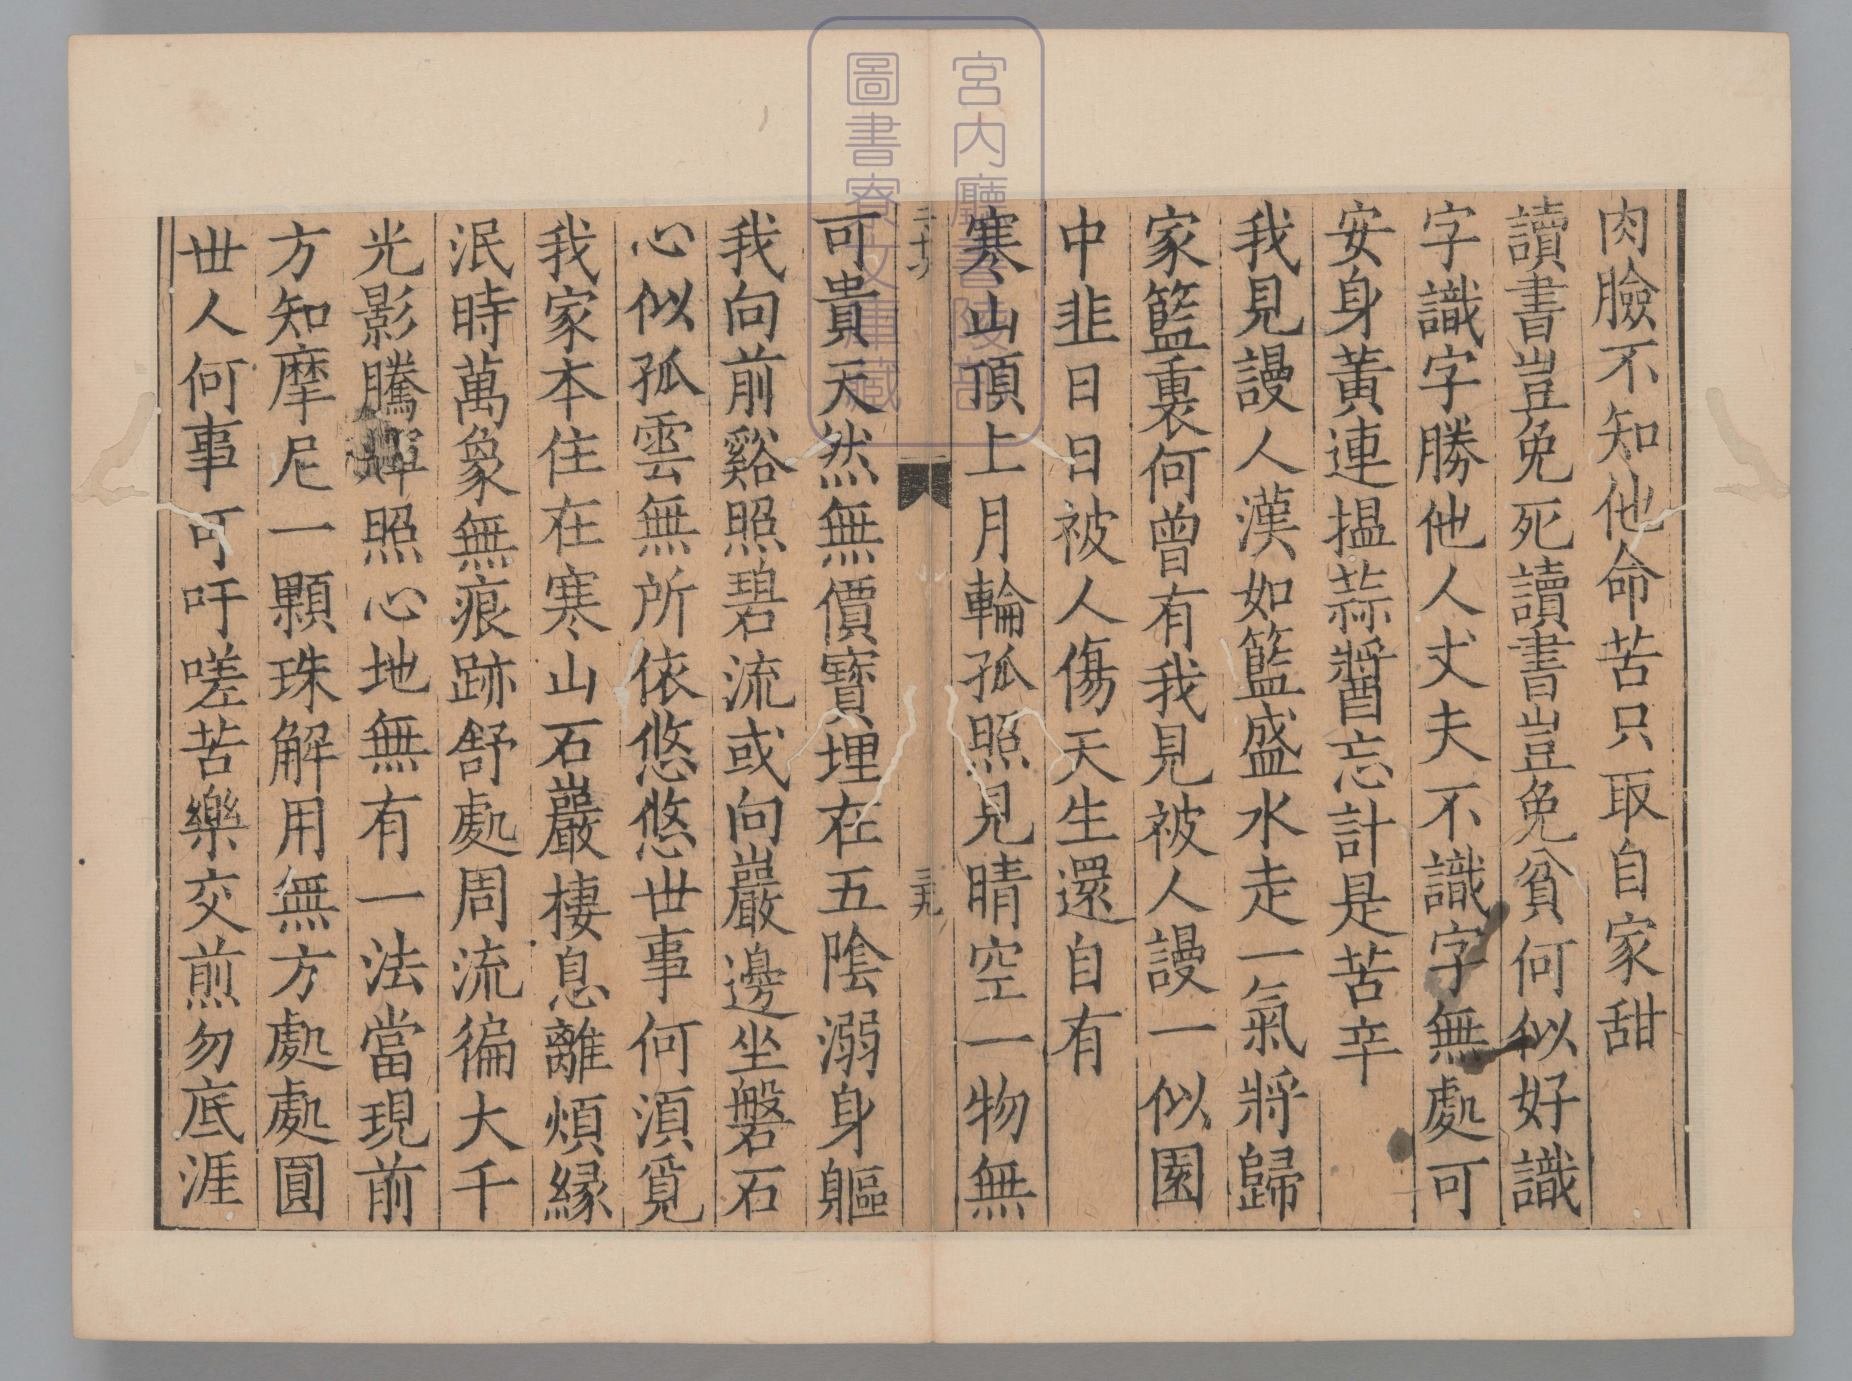 肉臉不知他命苦只取自家甜
讀書豈免死讀書豈免貧何似好識
字識字勝他人丈夫不識字無處可
安身黃連搵蒜醬忘計是苦辛
我見謾人漢如籃盛水走一氣將歸
家籃裏何曾有我見被人謾一似園
中韭日日被人傷天生還自有
寒山頂上月輪孤照見晴空一物無
三十九
可貴天然無價寶埋在五陰溺身軀
我向前谿照碧流或向巖邊坐磐石
心似孤雲無所依悠悠世事何須覓
我家本住在寒山石巖棲息離煩緣
泯時萬象無痕跡舒處周流徧大千
光影騰輝照心地無有一法當現前
方知摩尼一顆珠解用無方處處圓
世人何事可吁嗟苦樂交煎勿底涯
宮內廳書陵部
圖書寮文庫藏